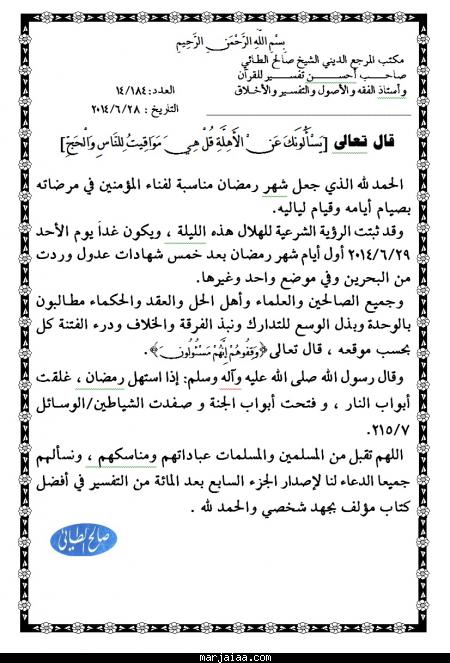 بِسْمِ اللَّهِ الرَّحْمَنِ الرَّحِيمِ
مكتب المرجع الديني الشيخ صالح الطائي
صاحب أحسن تفسير للقرآن
وأستاذ الفقه والأصول والتفسير والأخلاق
العدد: ١٤/١٨٤
التاريخ : ٢٠١٤/٦/٢٨
قال تعالى [يَسْأَلُونَكَ عَنْ الْأَهِلَّةِ قُلْ هِيَ مَوَاقِيتُ لِلنَّاسِ وَالْحَجِّ]
الحمد لله الذي جعل شهر رمضان مناسبة لفناء المؤمنين في مرضاته
بصيام أيامه وقيام لياليه.
وقد ثبتت الرؤية الشرعية للهلال هذه الليلة ، ويكون غداً يوم الأحد
٢٠١٤/٦/٢٩ أول أيام شهر رمضان بعد خمس شهادات عدول وردت
من البحرين وفي موضع واحد وغيرها.
وجميع الصالحين والعلماء وأهل الحل والعقد والحكماء مطالبون
بالوحدة وبذل الوسع للتدارك ونبذ الفرقة والخلاف ودرء الفتنة كل
بحسب موقعه ، قال تعالى﴿وَقِفُوهُمْ إِنَّهُمْ مَسْئُولُونَ﴾.
وقال رسول الله صلى الله عليه وآله وسلم: إذا استهل رمضان ، غلقت
أبواب النار ، و فتحت أبواب الجنة و صفدت الشياطين/الوسائل
٢١٥/٧.
اللهم تقبل من المسلمين والمسلمات عباداتهم ومناسكهم ، ونسألهم
جميعا الدعاء لنا لإصدار الجزء السابع بعد المائة من التفسير في أفضل
كتاب مؤلف بجهد شخصي والحمد لله .
صالح الطائي
marjaiaa.com